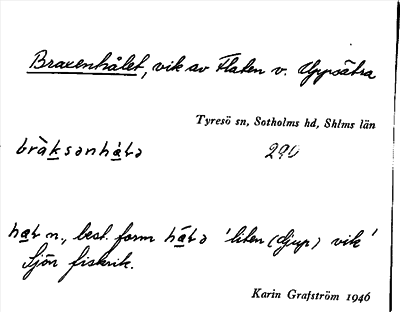 Braxenhålet, vik av Flaten v. Uppsätra
Tyresö sn, Sotholms hd, Shlms län
290
hɑ̲ɫ n., best. form hɑ̲́ɫə 'liten (djup) vik'
Sjön fiskrik.
Karin Grafström 1946